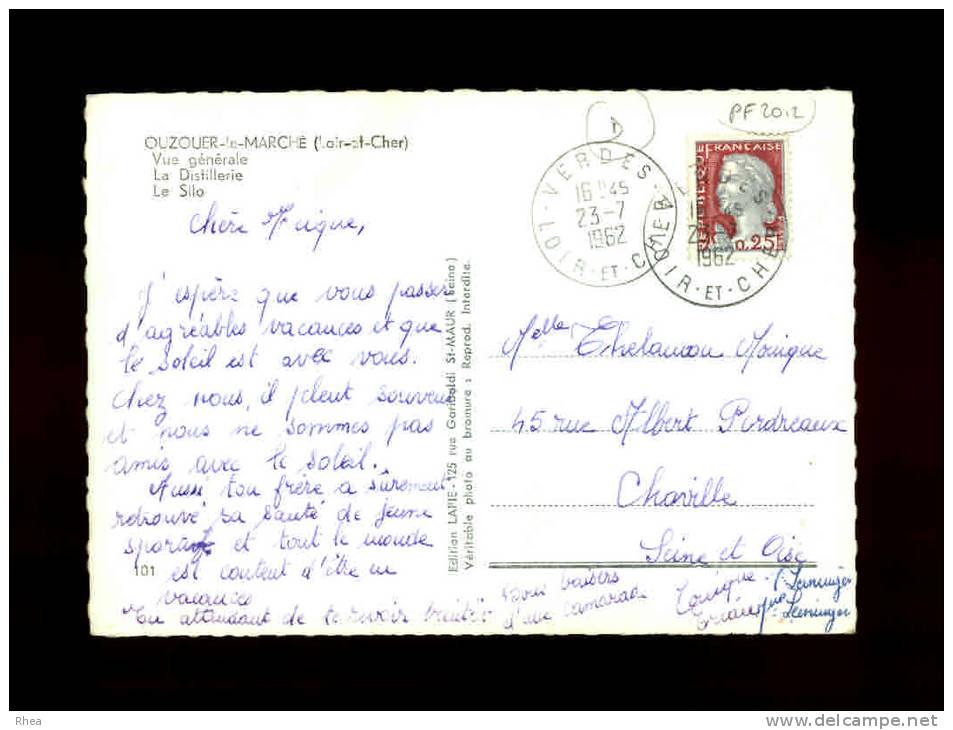 OUZOUER-le-MARCHÉ (Loir-et-Cher)
Vue générale
La Distillerie
Le Silo
PF 20.12
VERDES
16 H45
23-7
1962
LOIR-ET-CHER
VERDES
16 H45
23-7
1962
LOIR-ET-CHER
RÉPUBLIQUE FRANÇAISE
0.25
Chère
J'espère que vous passez
d'agréables vacances et que
le soleil est avec vous.
Chez nous, il pleut souvent
et nous ne sommes pas
amis avec le soleil.
Aussi ton frère a sûrement
retrouvé sa santé de jeune
et tout le monde
est content d'être en
vacances
En attendant de te revoir bientôt
d'une camarade
bons baisers
Edition LAPIE - 125 rue Garibaldi St-MAUR (Seine)
Véritable photo au bromure : Reprod. Interdite.
Melle Monique
45 rue Albert Perdreaux
Chaville
Seine et Oise
101
Rhea
www.delcampe.net